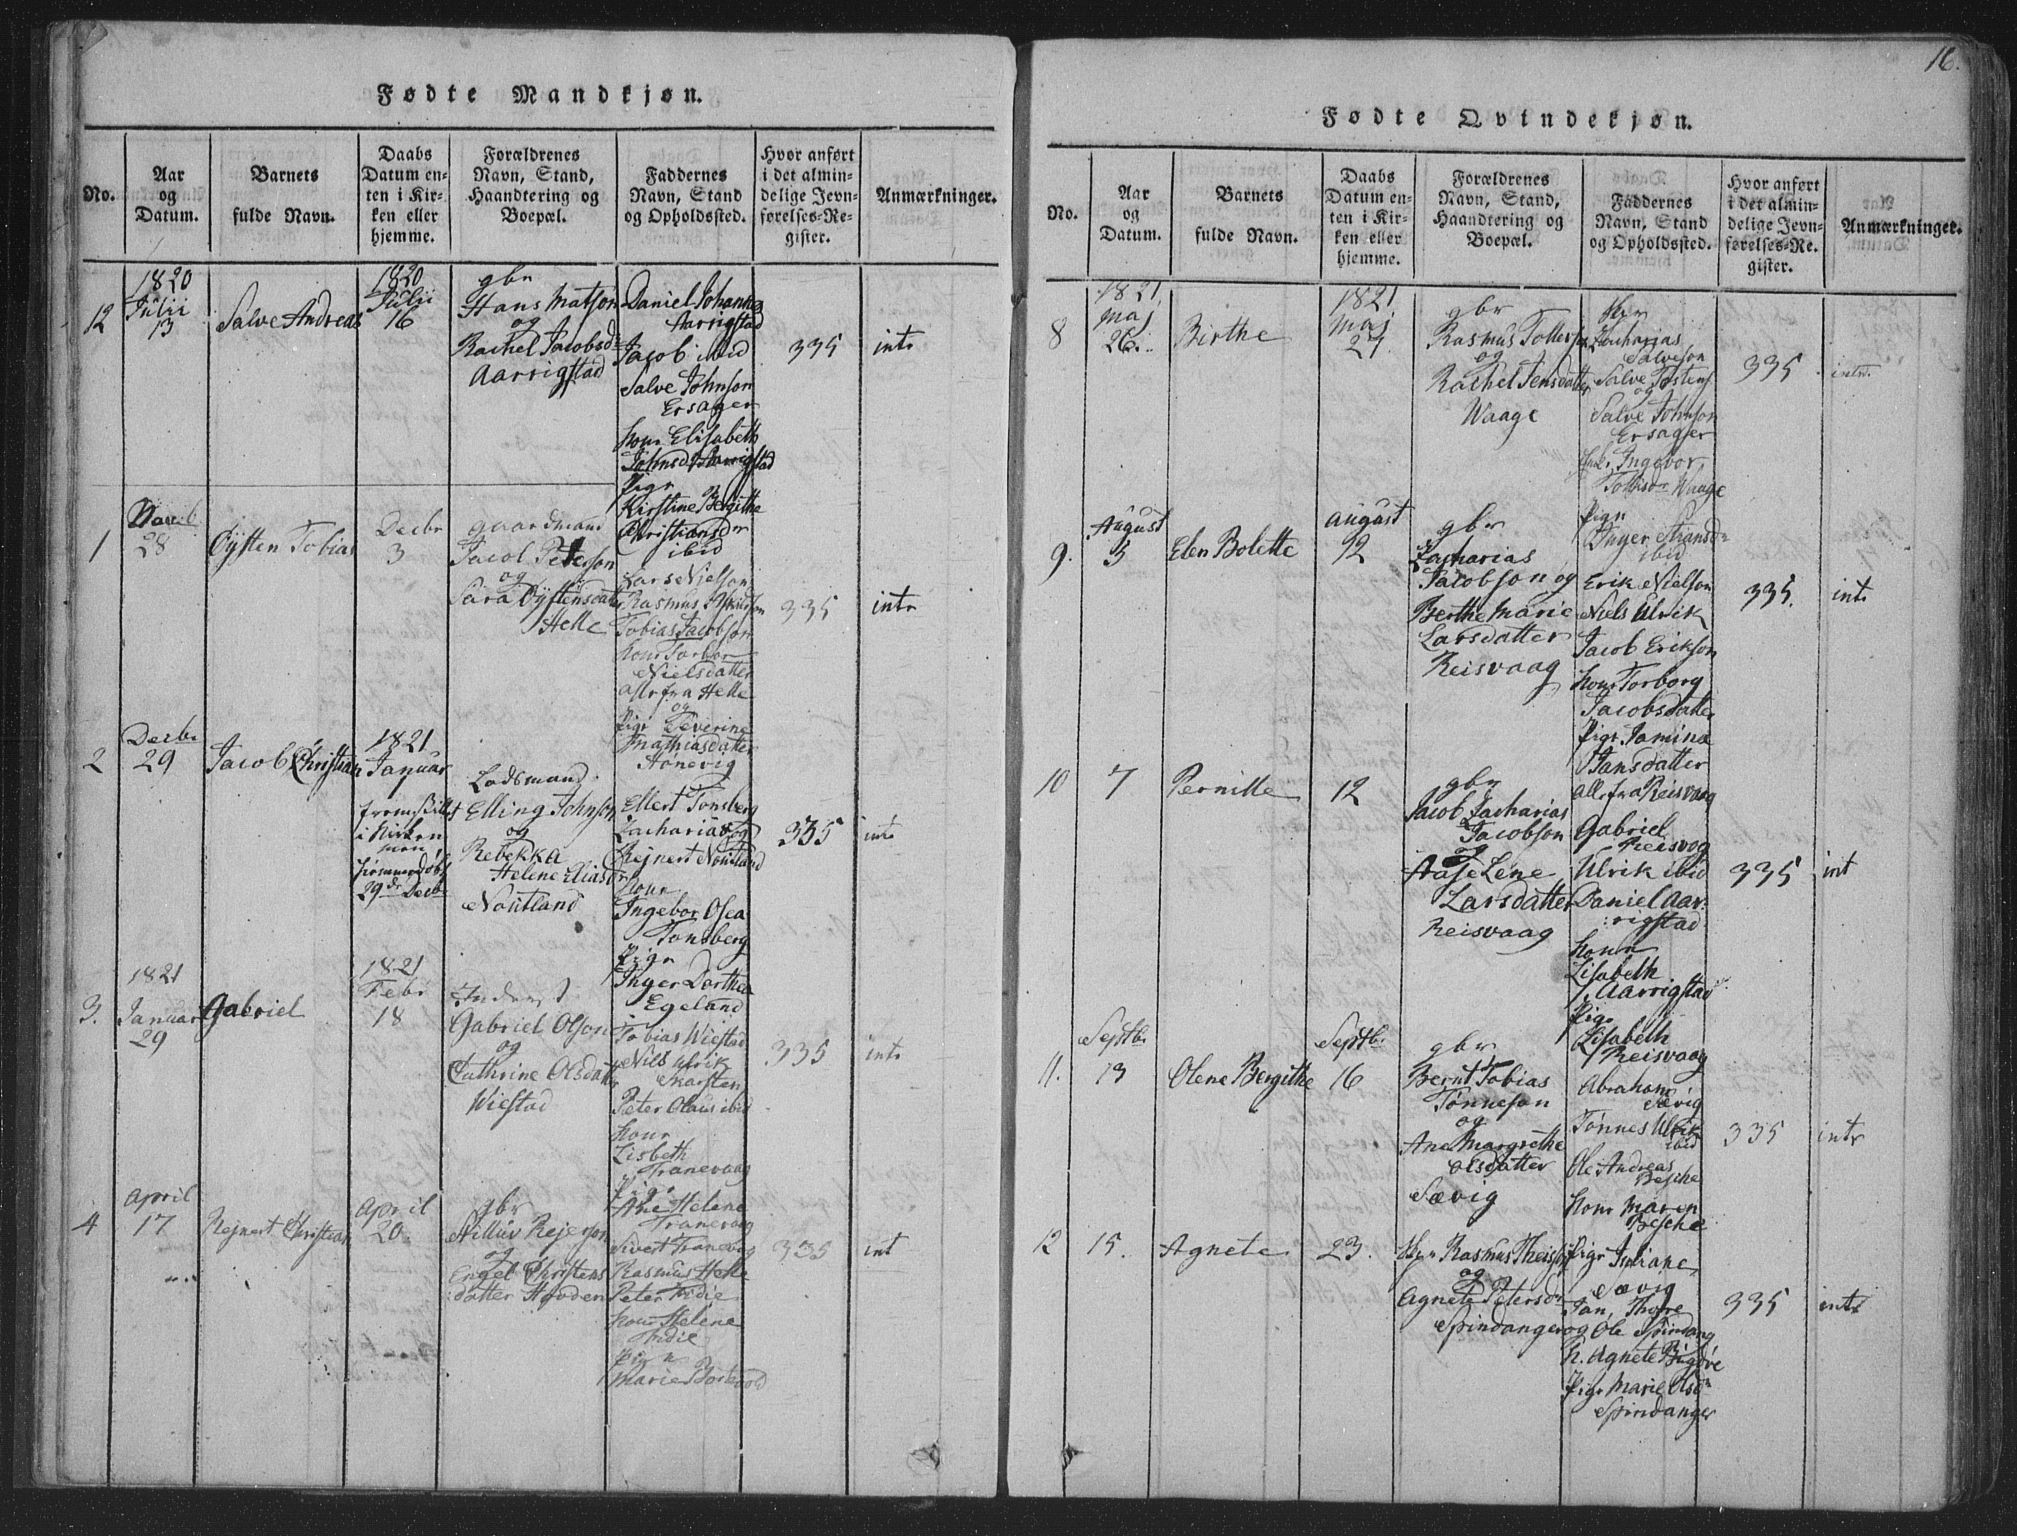 Fødte Mandkjøn.
No.
Aar
og
Datum.
Barnets
fulde Navn.
Daabs
Datum en-
ten i Kir-
ken eller
hjemme.
Forældrenes
Navn, Stand,
Haandtering og
Boepæl.
Faddernes
Navn, Stand
og Opholdssted.
Hvor anført
i det almin-
delige Jevn-
førelses-Re-
gister.
Anmærkninger.
12
1820
Julii
13
Salve Andreas
1820
Julii
16
gbr
Hans Matson
og
Rachel Jacobsd:
Aarrigstad
Daniel Johannes
Aarrigstad
Jacob ibid
Salve Johnson
Ersager
Kone Elisabeth
Johnsd Aarrigstad
Pige
Kirstine Bergithe
Christiansdr
ibid
335
intr
1
28
Øÿsten Tobias
Decbr
3
gaardmand
Jacob Peterson
og
Sara Øÿstensdatter
Helle
Lars Nielson
Rasmus
Tobias Jacobson
Kone Torbor
Nielsdatter
alle fra Helle
og
Pige Severine
Mathiasdatter
Aonevig
335
intr
2
Decbr
29
Jacob Christian
1821
Januar
fremstillet
i Kirken
29de Decbr
Lodsmand
Elling Johnson
og
Rebekka
Helene Eliasdr
Noutland
Ellert Tonsberg
Zacharias og
Rejnert Noutland
Kone
Ingebor Osea
Tonsberg
Pige
Inger Dorthea
Egeland
335
intr
3.
1821
Januar
29
Gabriel
1821
Febr
18
Inderst
Gabriel Olson
og
Cathrine Olsdatter
Wiestad
Tobias Wiestad
Niels Ulrik
Skarsten
Peter Olaus ibid
Kone
Lisbeth
Tranevaag
Pige
Ane Helene
Tranevaag
335
intr
4
April
17
Rejnert Christian
April
20
gbr
Villur Rejerson
og
Engel Christens
:datter Hovden
Sivert Tranevig
Rasmus Helle
Peter Indie
Kone Helene
Indie
pige
Marie
335
int
16.
Fødte Qvindekjøn.
No.
Aar
og
Datum.
Barnets
fulde Navn.
Daabs
Datum en-
ten i Kir-
ken eller
hjemme.
Forældrenes
Navn, Stand,
Haandtering og
Boepæl.
Faddernes
Navn, Stand
og Opholdssted.
Hvor anført
i det almin-
delige Jevn-
førelses-Re-
gister.
Anmærkninger.
8
1821
Maj
26.
Birthe
1821
Maj
27
gbr
Rasmus Tollefson
og
Rachel Jensdatter
Waage
Zacharias
Salveson
Salve Tostens
og
Salve Johnson
Ersager
Ingebor
Waage
Pige
Inger
ibid
335
intr.
9.
August
5
Elen Bolette
August
12
gbr
Zacharias
Jacobson og
Berthe Marie
Larsdatter
Reisvaag
Erik Nielson
Niels Ulrik
Jacob Erikson
Kone Torborg
Jacobsdatter
Pige Jamina
Hansdatter
alle fra Reisvaag
335.
intr
10
7
Pernille
12
gbr
Jacob Zacharias
Jacobson
og
Aase Lene
Larsdatter
Reisvaag
Gabriel
Reisvog
Ulrik ibid
Daniel Aar-
:rigstad
Kone
Lisabeth
Aarrigstad
Pige
Lisabeth
Reisvaag
335
int
11.
Septbr
13
Olene Bergithe
Septbr
16
gbr
Bernt Tobias
Tønneson
og
Ane Margrethe
Olsdatter
Sævig
Abraham
Sævig
Tønnes Ulrik
ibid
Ole Andreas
Besche
Kone Maren
Besche
Pige Juliane
Sævig
335
intr
12
15.
Agnete
23.
Rasmus Theis
og
Agnete Petersdr
Spindanger
Jan, Thore
og Ole Spindang
K. Agnete
Pige Marie Olsdr
Spindanger
335
intr